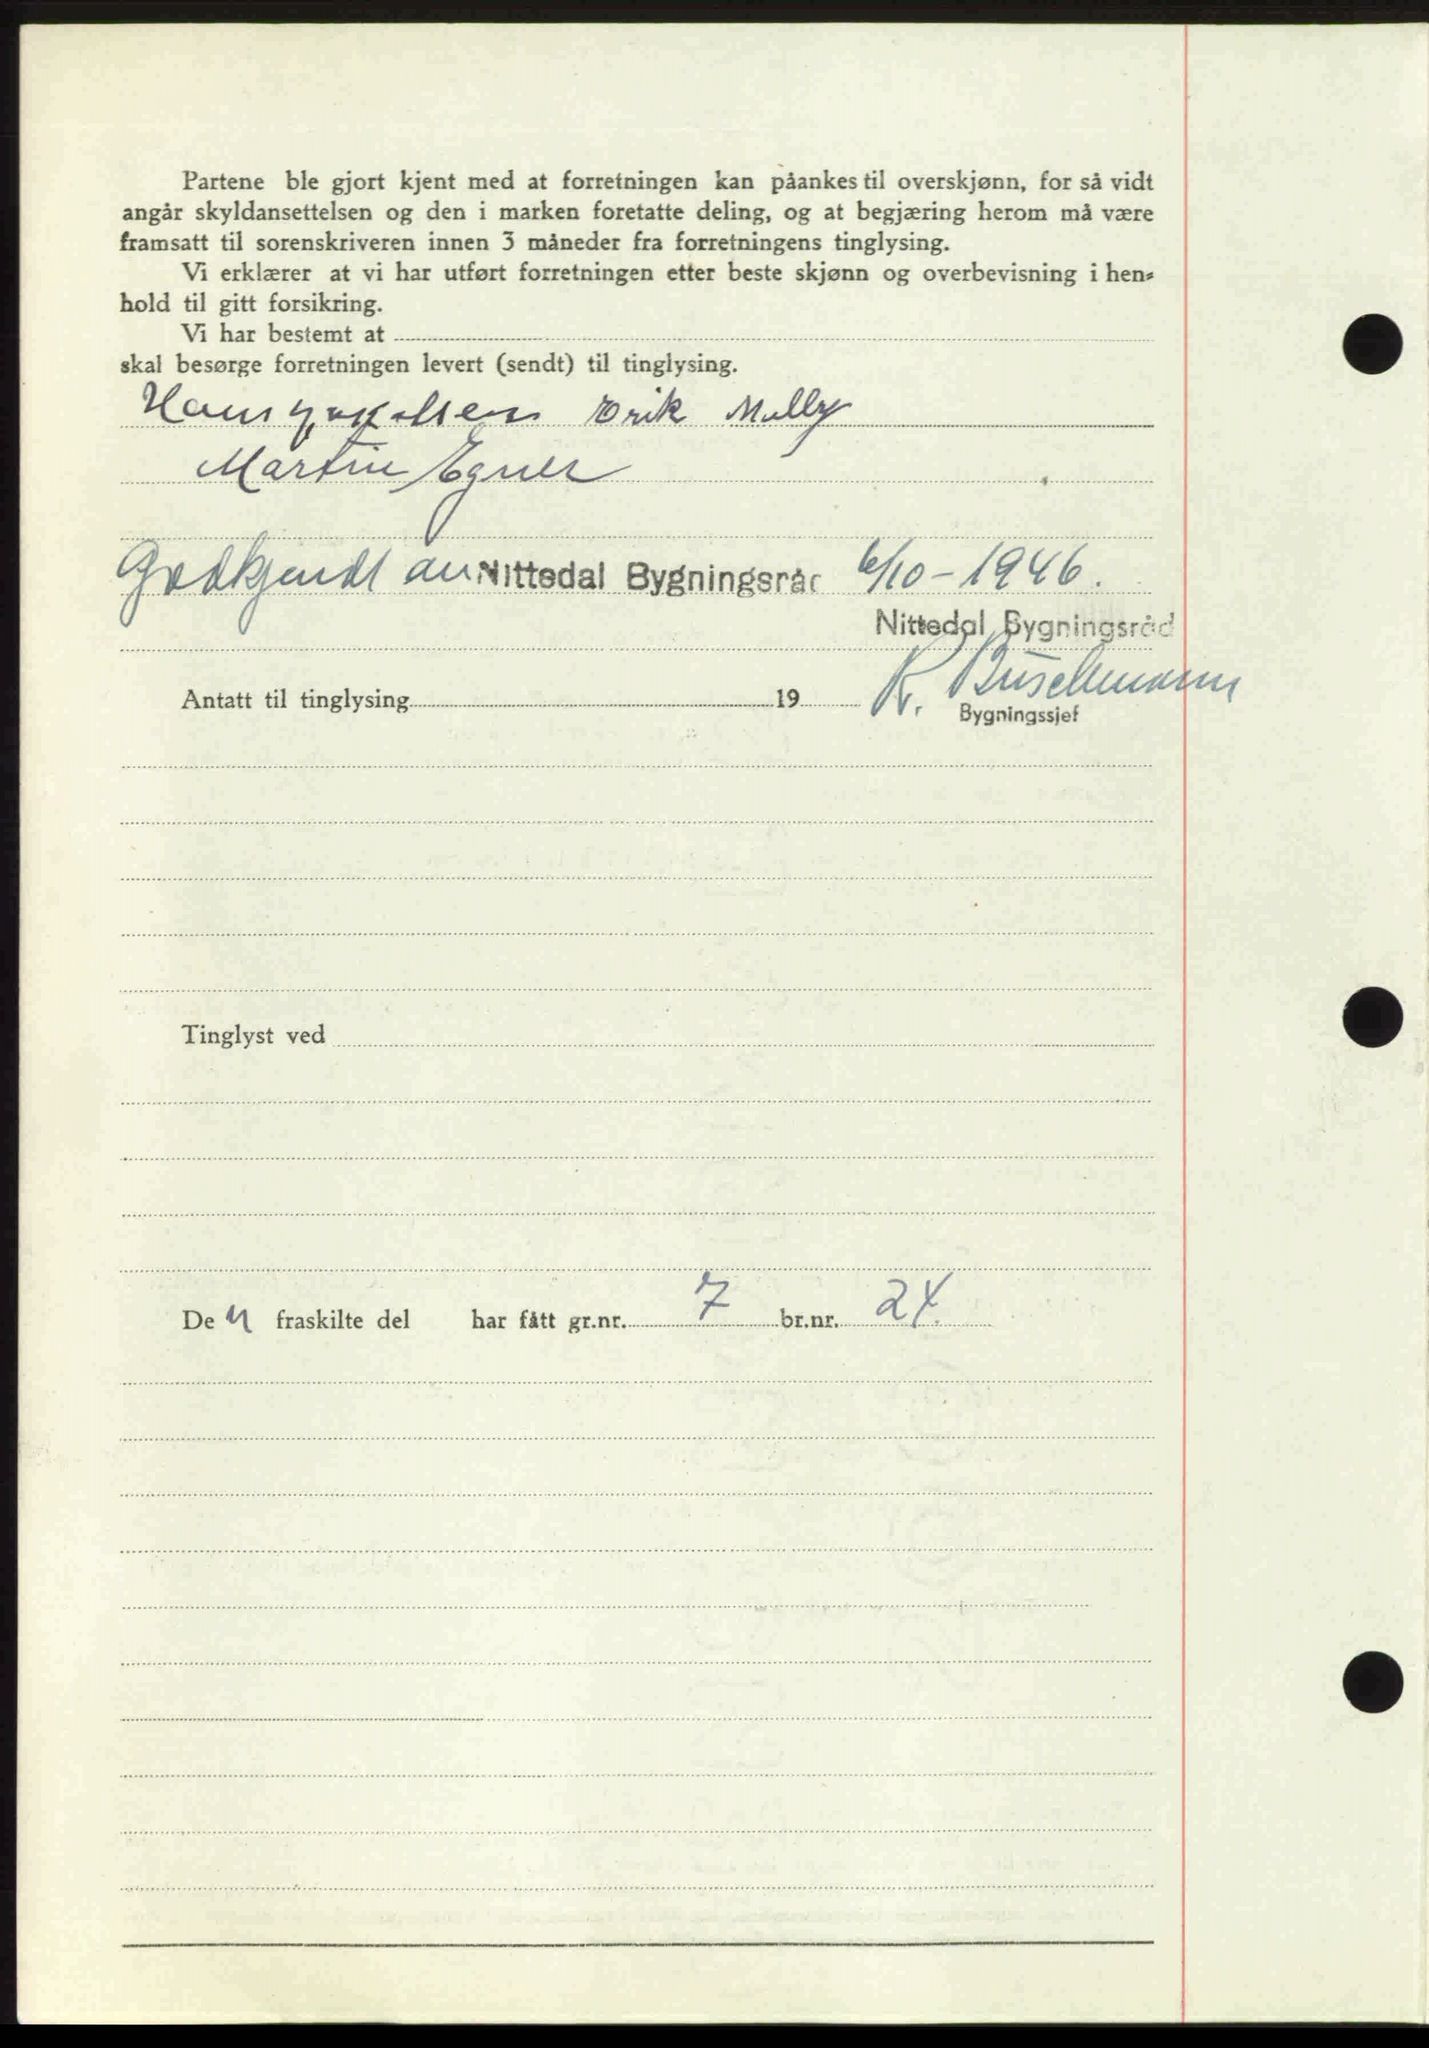 Partene ble gjort kjent med at forretningen kan påankes til overskjønn, for så vidt
angår skyldansettelsen og den i marken foretatte deling, og at begjæring herom må være
framsatt til sorenskriveren innen 3 måneder fra forretningens tinglysing.
Vi erklærer at vi har utført forretningen etter beste skjønn og overbevisning i hen-
hold til gitt forsikring.
Vi har bestemt at
skal besørge forretningen levert (sendt) til tinglysing.
Hans Erik
Martin Egner
Godkjendt av Nittedal Bygningsråd 6/10-1946.
Nittedal Bygningsråd
Antatt til tinglysing 19 R. Buschmann
Bygningssjef
Tinglyst ved
De n fraskilte del har fått gr.nr. 7 br.nr. 24.